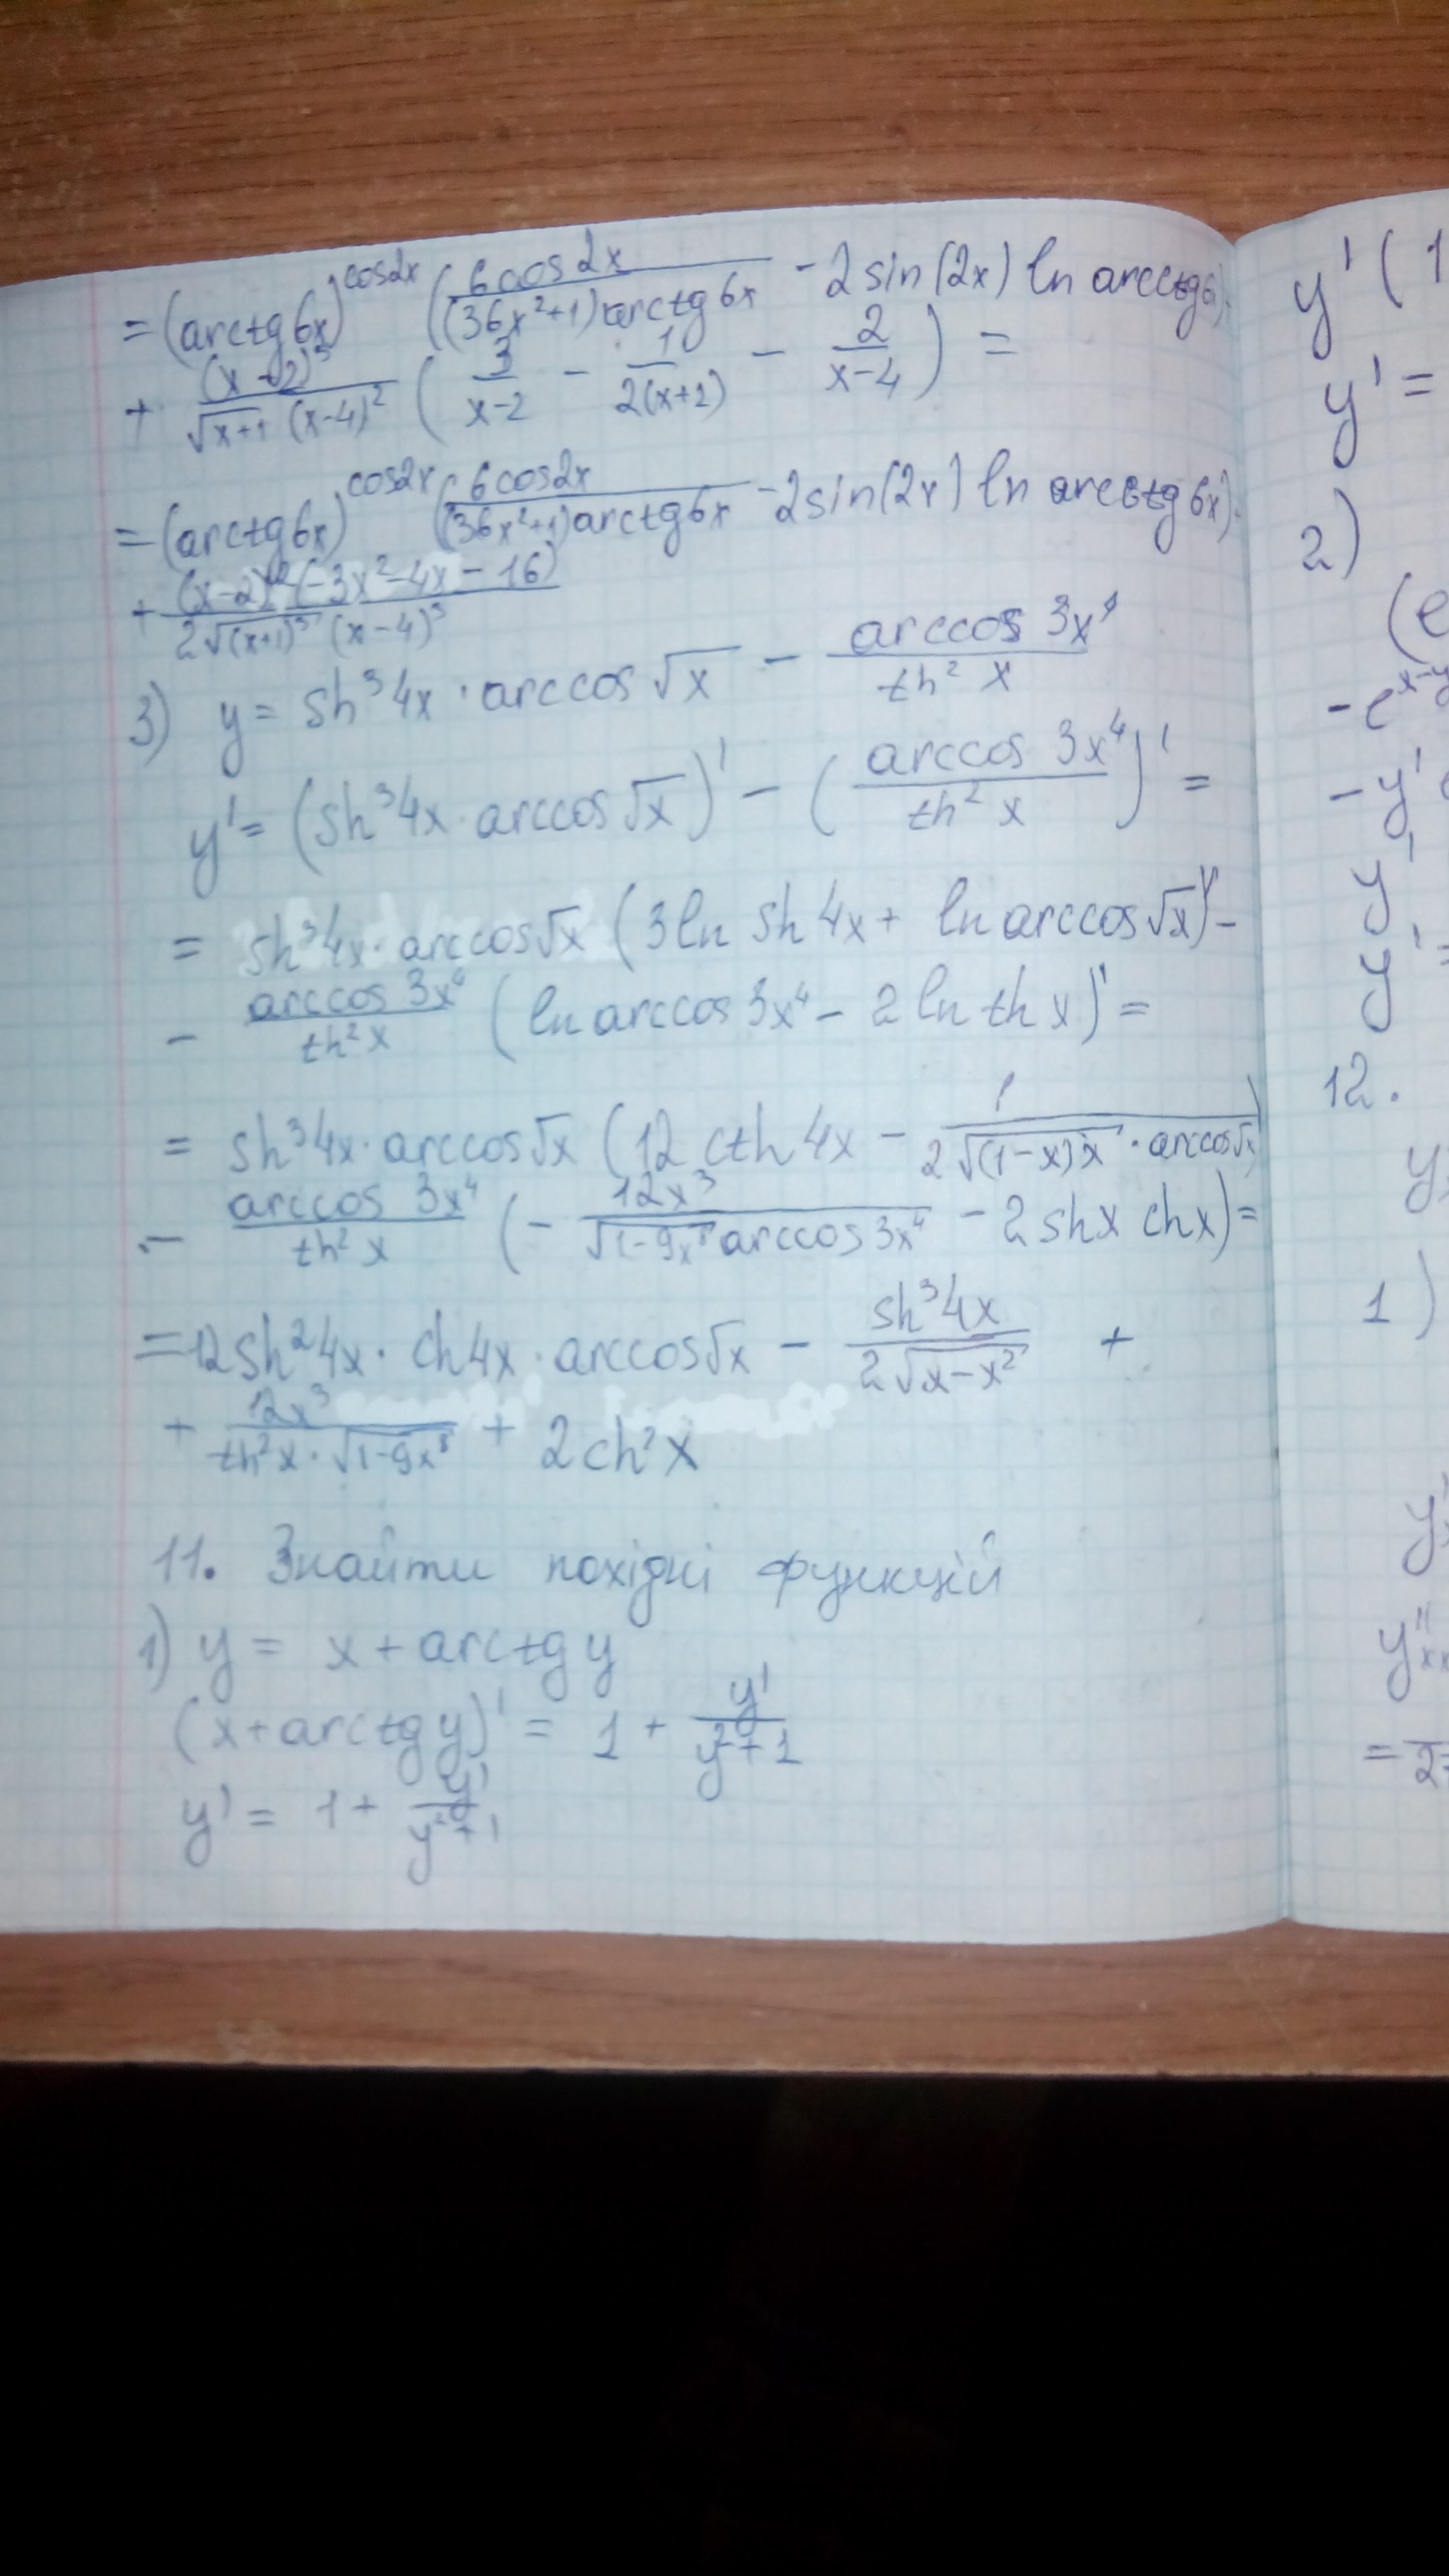 = (arctg 6x)^cos2x (6cos2x / (36x²+1) arctg 6x - 2 sin(2x) ln arcctg 6x) +
+ (x-2)³ / √x+1 (x-4)² (3 / x-2 - 1 / 2(x+2) - 2 / x-4) =
= (arctg 6x)^cos2x (6cos2x / (36x²+1) arctg 6x - 2 sin(2x) ln arcctg 6x) +
+ (x-2)² (-3x²-4x-16) / 2√(x+1)³ (x-4)³
3) y = sh³4x · arccos √x - arccos 3x⁴ / th² x
y' = (sh³4x · arccos √x)' - (arccos 3x⁴ / th² x)' =
= sh³4x · arccos√x (3 ln sh 4x + ln arccos √x)' -
- arccos 3x⁴ / th² x (ln arccos 3x⁴ - 2 ln th x)' =
= sh³4x · arccos√x (12 cth 4x - 1 / 2√(1-x)x · arccos√x)
- arccos 3x⁴ / th² x (- 12x³ / √1-9x⁸ arccos 3x⁴ - 2 shx chx) =
= 12sh²4x · ch4x · arccos√x - sh³4x / 2√x-x² +
+ 12x³ / th²x · √1-9x⁸ + 2ch²x
11. Знайти похідні функцій
1) y = x + arctg y
(x + arctg y)' = 1 + y' / y²+1
y' = 1 + y' / y²+1
y' (1
y' =
2)
(e
- e^x-y
- y'
y'
y' =
12.
y
1)
y'
y''xx
= 2